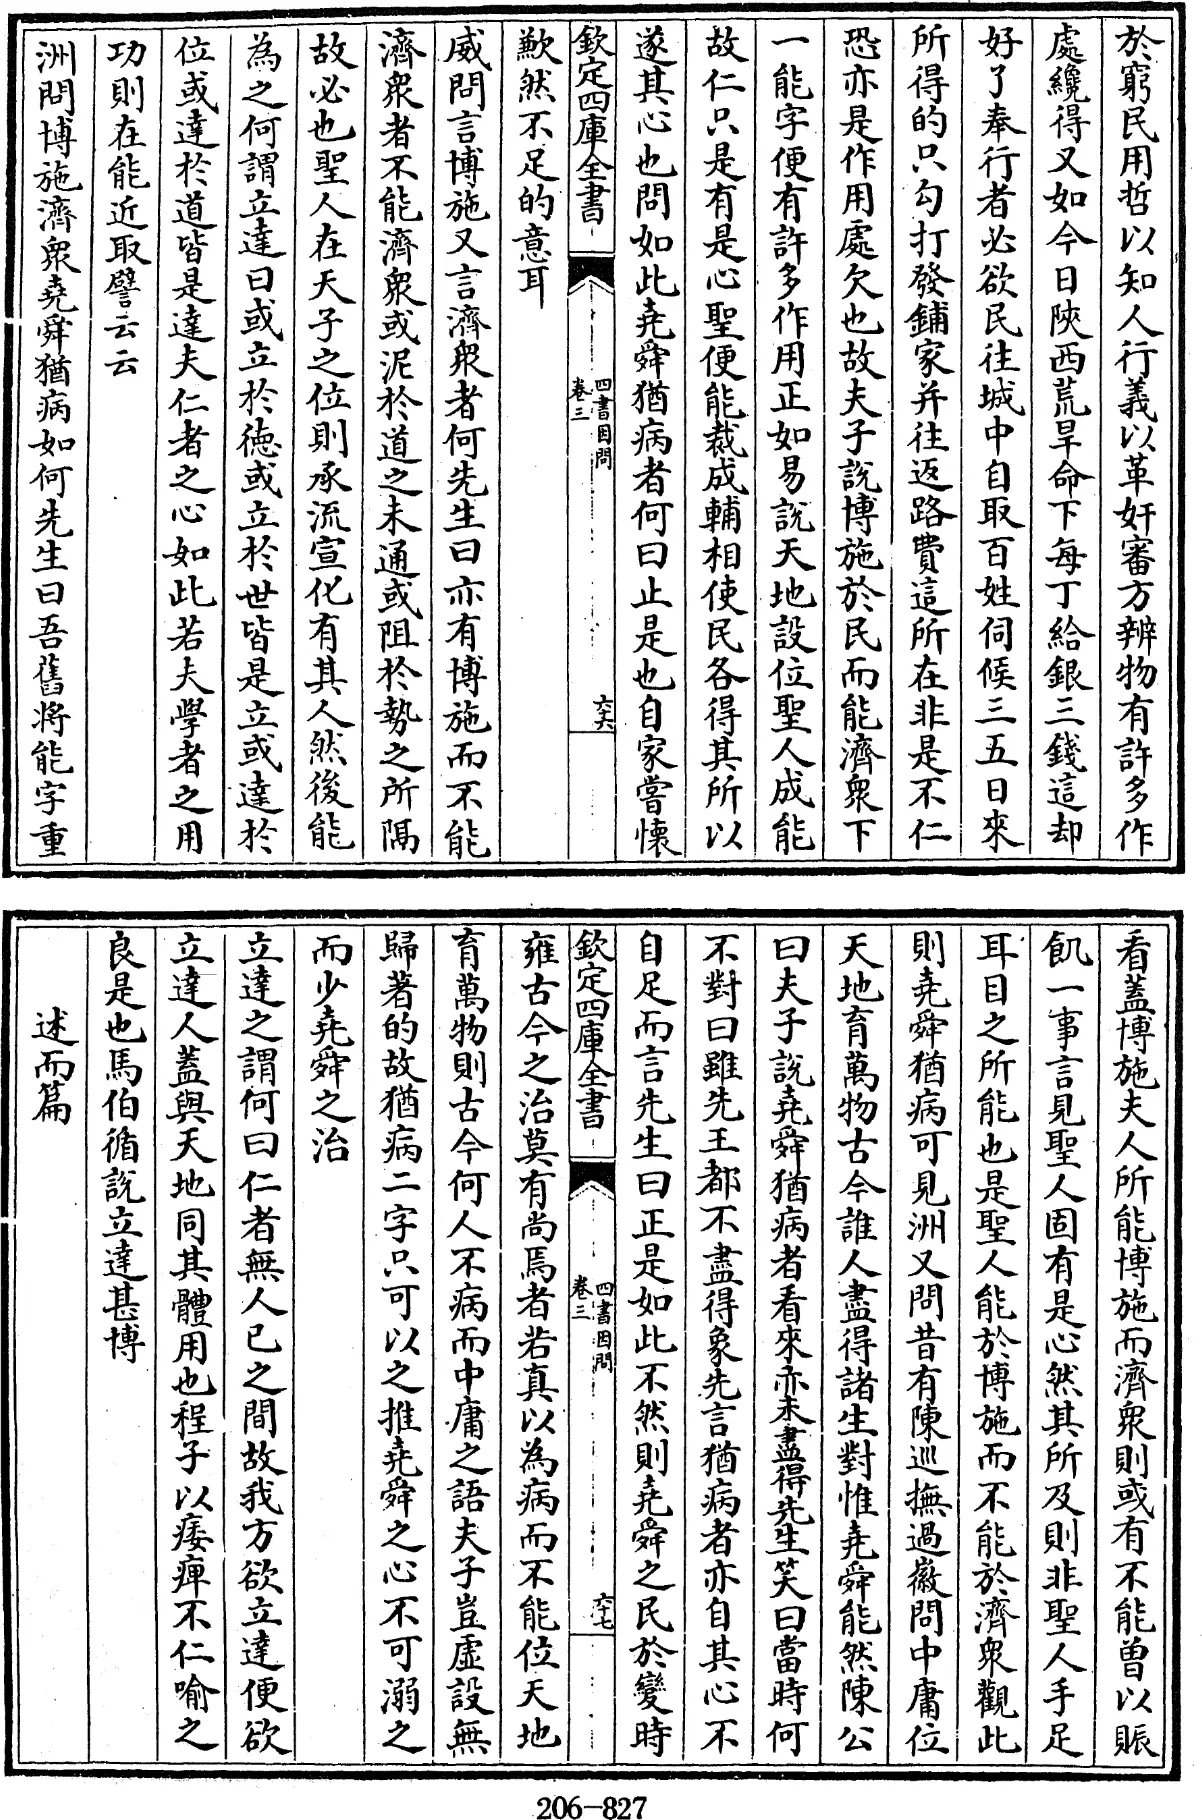 於窮民用哲以知人行義以革奸審方辨物有許多作
處纔得又如今日陝西荒旱命下每丁給銀三錢這却
好了奉行者必欲民往城中自取百姓伺候三五日來
所得的只勾打發鋪家并往返路費這所在非是不仁
恐亦是作用處欠也故夫子說博施於民而能濟衆下
一能字便有許多作用正如易說天地設位聖人成能
故仁只是有是心聖便能裁成輔相使民各得其所以
遂其心也問如此堯舜猶病者何曰止是也自家嘗懷
欽定四庫全書
四書因問
卷三
六六
歉然不足的意耳
威問言博施又言濟衆者何先生曰亦有博施而不能
濟衆者不能濟衆或泥於道之未通或阻於勢之所隔
故必也聖人在天子之位則承流宣化有其人然後能
為之何謂立達曰或立於德或立於世皆是立或達於
位或達於道皆是達夫仁者之心如此若夫學者之用
功則在能近取譬云云
洲問博施濟衆堯舜猶病如何先生曰吾舊將能字重
看蓋博施夫人所能博施而濟衆則或有不能曽以賑
飢一事言見聖人固有是心然其所及則非聖人手足
耳目之所能也是聖人能於博施而不能於濟衆觀此
則堯舜猶病可見洲又問昔有陳巡撫過徽問中庸位
天地育萬物古今誰人盡得諸生對惟堯舜能然陳公
曰夫子說堯舜猶病者看來亦未盡得先生笑曰當時何
不對曰雖先王都不盡得象先言猶病者亦自其心不
自足而言先生曰正是如此不然則堯舜之民於變時
欽定四庫全書
四書因問
卷三
六七
雍古今之治莫有尚焉者若真以為病而不能位天地
育萬物則古今何人不病而中庸之語夫子豈虛設無
歸著的故猶病二字只可以之推堯舜之心不可溺之
而少堯舜之治
立達之謂何曰仁者無人已之間故我方欲立達便欲
立達人蓋與天地同其體用也程子以痿痺不仁喻之
良是也馬伯循說立達甚博
述而篇
206-827